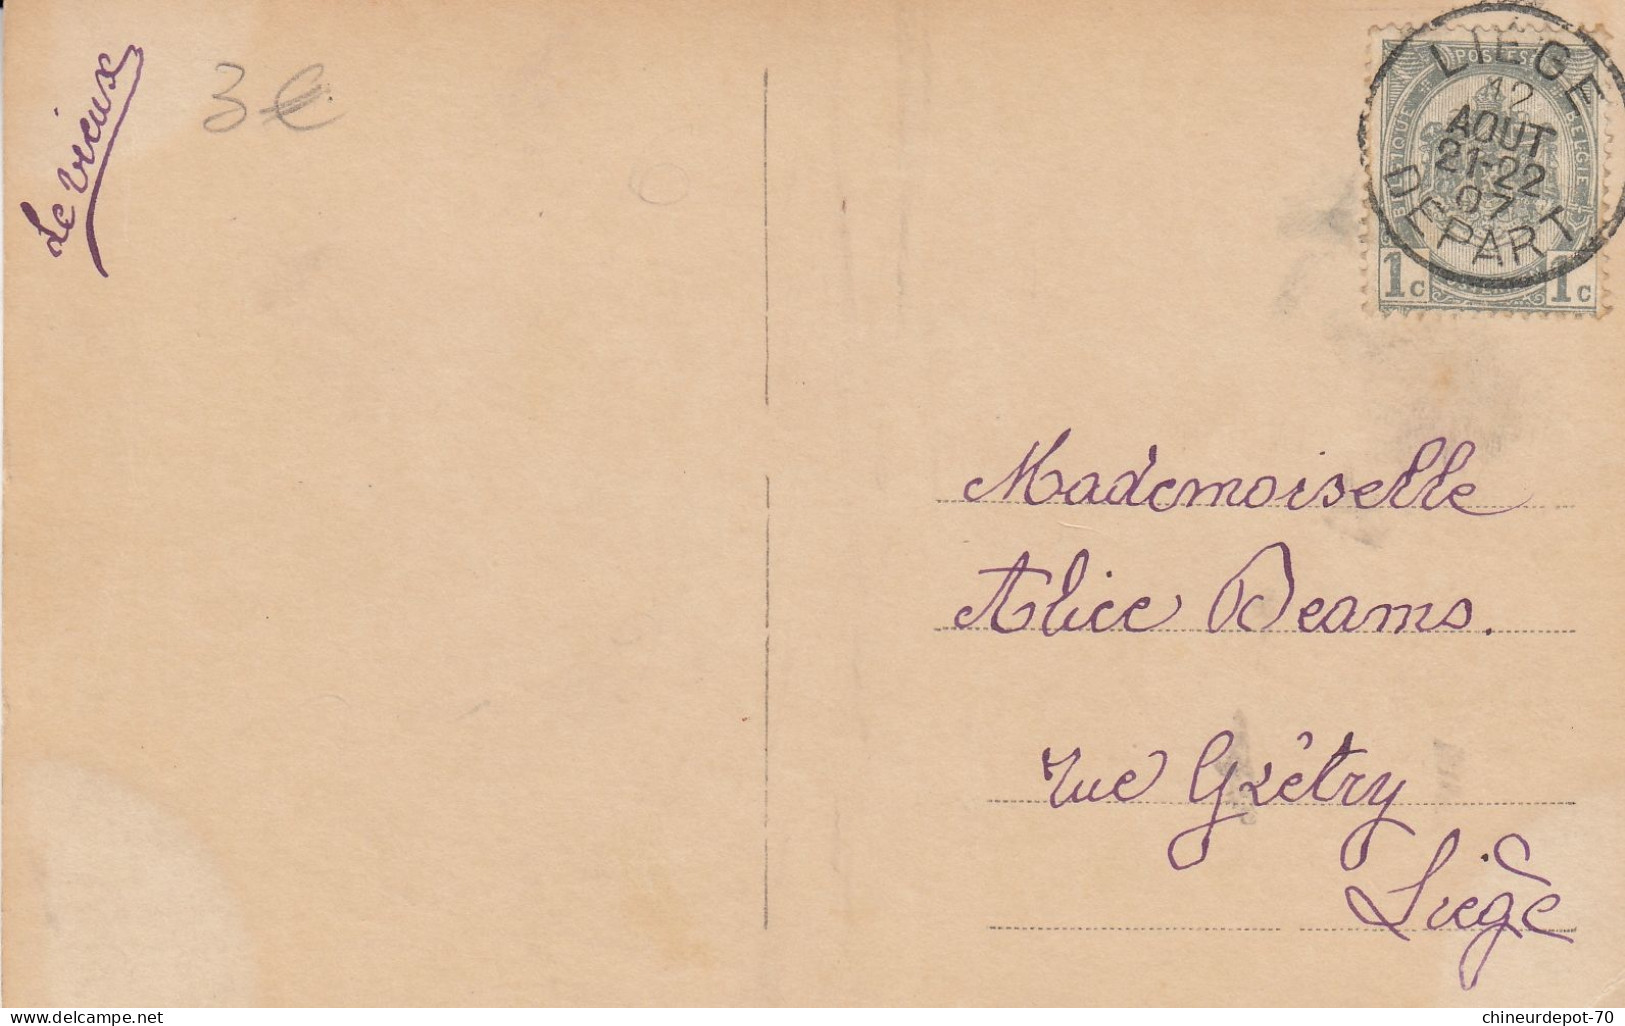 Le vieux
3€
POSTES
BELGIQUE
BELGIE
1c
1c
LIEGE
12
AOUT
21-22
07
DEPART
Mademoiselle
Alice Deams.
rue Grétry
Liège
delcampe.net
chineurdepot-70